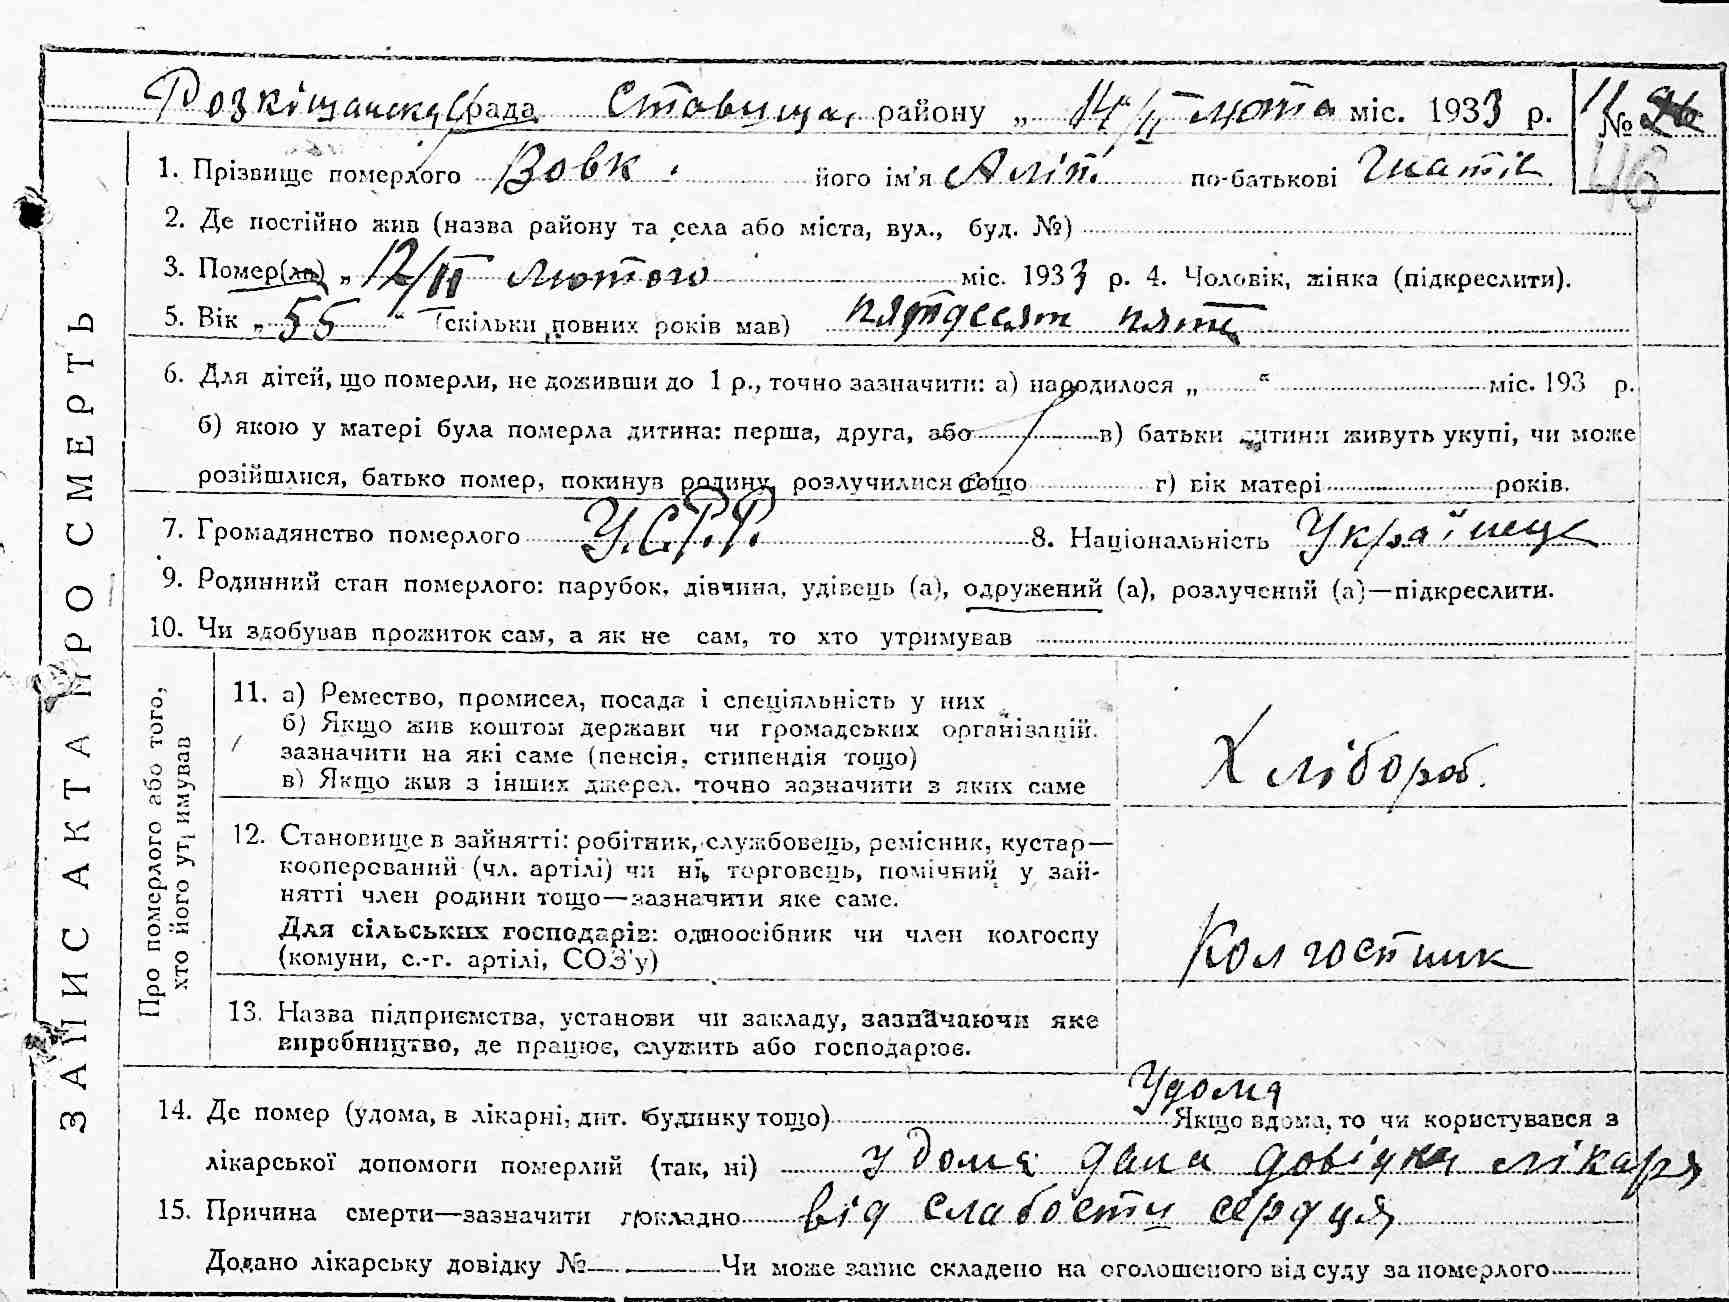 Розкішанська рада Ставища району „ 14/II люта міс. 1933 р.
№
46
1. Прізвище померлого Вовк його ім'я Аліп. по-батькові Гнатів
2. Де постійно жив (назва району та села або міста, вул., буд. №)
3. Помер(ла) „ 12/II лютого міс. 1933 р. 4. Чоловік, жінка (підкреслити).
5. Вік „ 55 “ (скільки повних років мав) пятдесят пять
6. Для дітей, що померли, не доживши до 1 р., точно зазначити: а) народилося „ “ міс. 193 р.
б) якою у матері була померла дитина: перша, друга, або в) батьки дитини живуть укупі, чи може
розійшлися, батько помер, покинув родину, розлучилися тощо г) вік матері років.
7. Громадянство померлого У.С.Р.Р. 8. Національність Українец
9. Родинний стан померлого: парубок, дівчина, удівець (а), одружений (а), розлучений (а)—підкреслити.
10. Чи здобував прожиток сам, а як не сам, то хто утримував
ЗАПИС АКТА ПРО СМЕРТЬ
Про померлого або того,
хто його утримував
11. а) Ремество, промисел, посада і спеціяльність у них
б) Якщо жив коштом держави чи громадських організацій.
зазначити на які саме (пенсія, стипендія тощо)
в) Якщо жив з інших джерел. точно зазначити з яких саме
Хлібороб.
12. Становище в зайнятті: робітник, службовець, ремісник, кустар—
кооперований (чл. артілі) чи ні, торговець, помічний у зай-
нятті член родини тощо—зазначити яке саме.
Для сільських господарів: одноосібник чи член колгоспу
(комуни, с.-г. артілі, СОЗ'у)
Колгоспник
13. Назва підприємства, установи чи закладу, зазначаючи яке
виробництво, де працює, служить або господарює.
14. Де помер (удома, в лікарні, дит. будинку тощо) Удома Якщо вдома, то чи користувався з
лікарської допомоги померлий (так, ні) удома дана довідка лікаря
15. Причина смерти—зазначити докладно від слабости сердця
Додано лікарську довідку № Чи може запис складено на оголошеного від суду за померлого